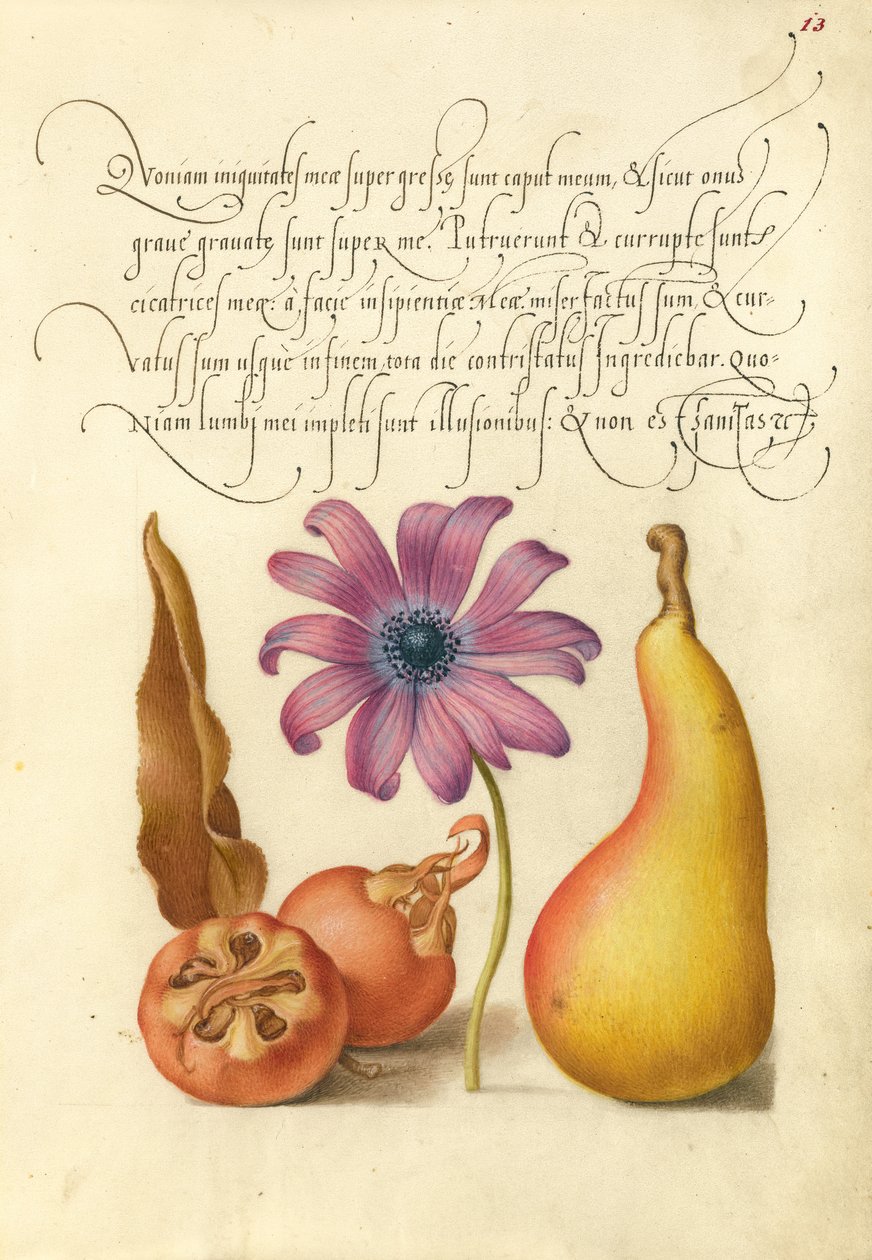 13
Quoniam iniquitates meæ supergressę sunt caput meum, & sicut onus
graue grauatę sunt supeR me. Putruerunt & currupte sunt
cicatrices meę: à facie insipientiæ Meæ. miser factus sum, & cur-
Vatus sum usquè in finem, tota die contristatus Ingrediebar. Quo-
Niam lumbj mei impleti sunt illusionibus: & non est sanitas